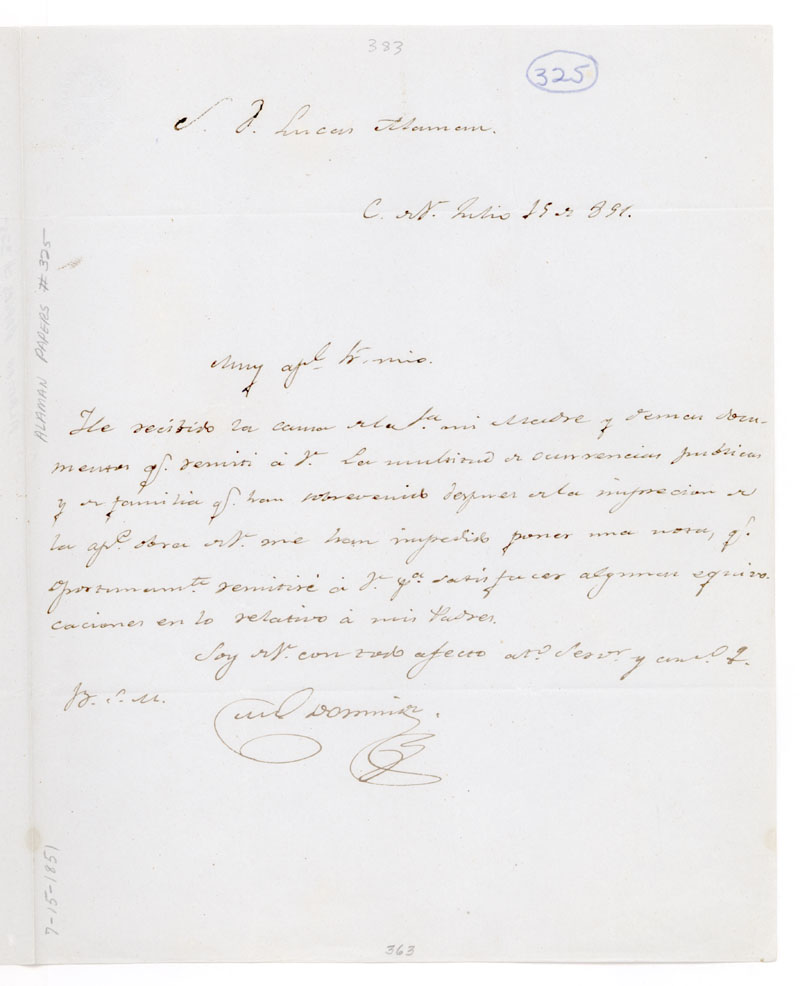 383
325
S. D. Lucas Alaman.
C. de V. Julio 15 de 851.
Muy apl. Sr. mio.
He recibido la causa de la Sa. mi Madre y demas docu-
mentos qe. remití á V. La multitud de ocurrencias publicas
y de familia qe. han sobrevenido despues de la imprecion de
la apl. obra de V. me han impedido poner una nota, qe.
oportunamte. remitiré á V. pa. satisfacer algunas equivo-
caciones en lo relativo á mis Padres.
Soy de V. con todo afecto ato. Servr. y Q.
B. S. M.
Doming
363
ALAMAN PAPERS # 325
7-15-1851